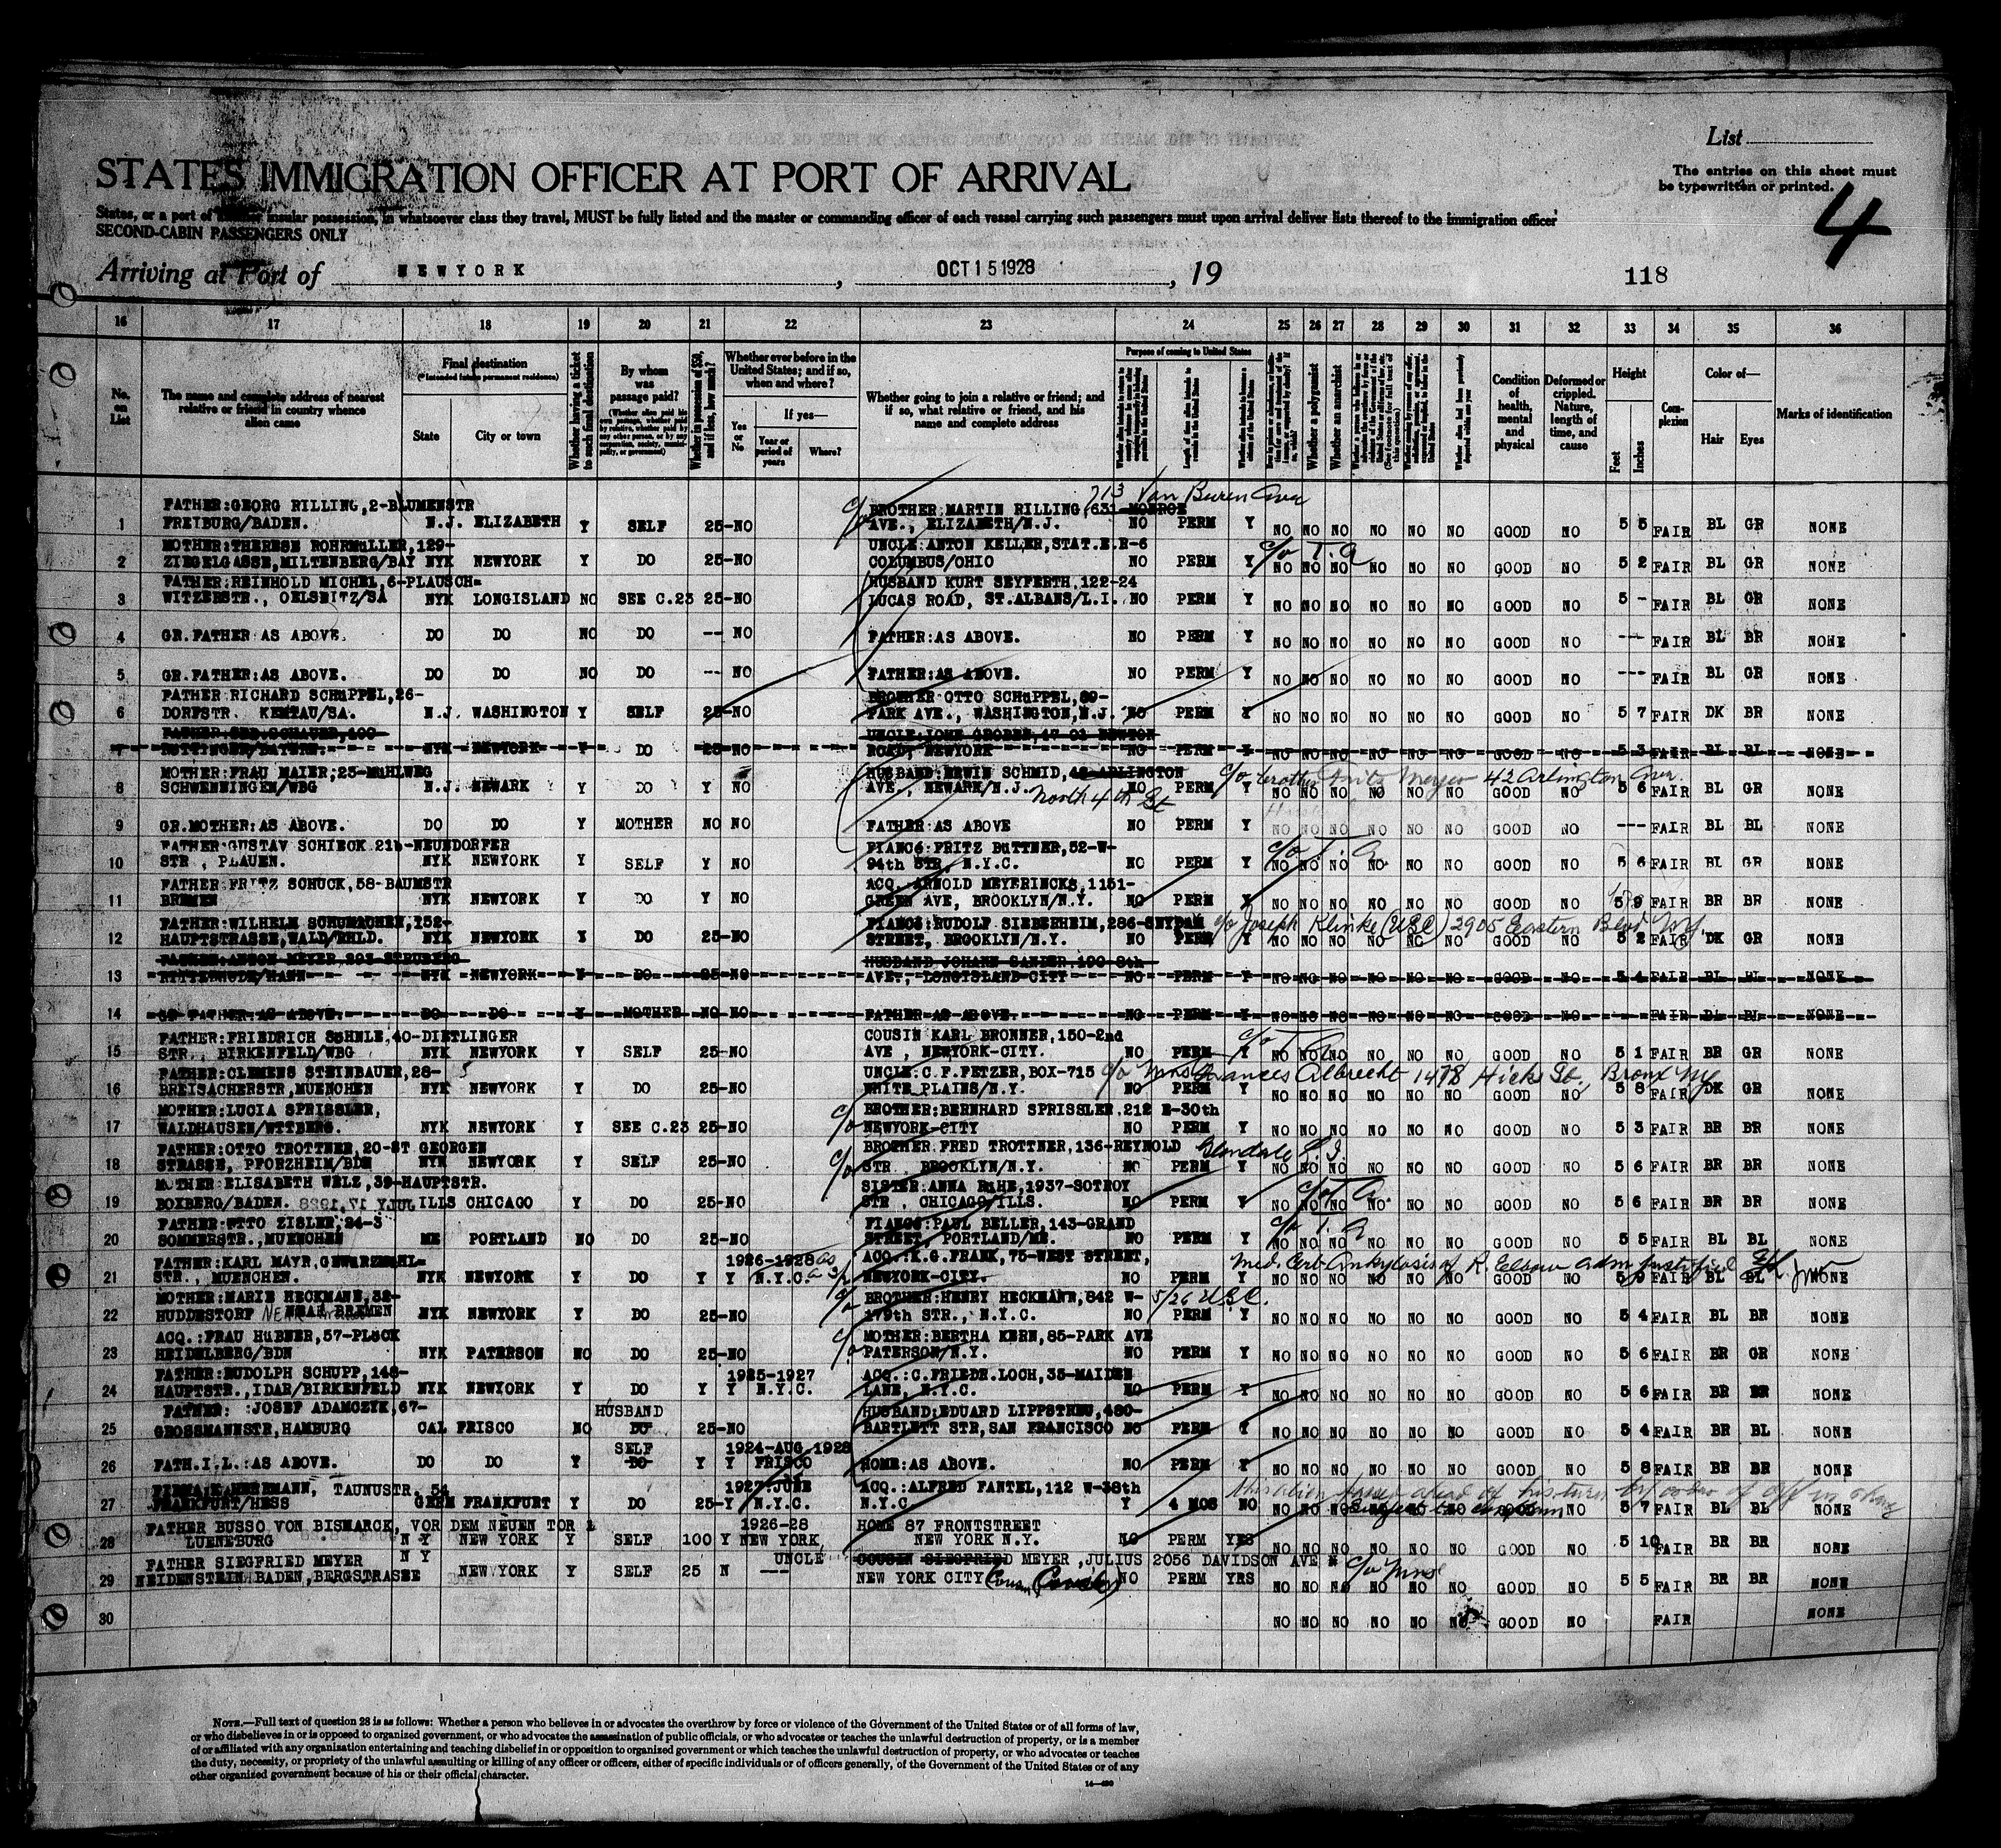 List
The entries on this sheet must
be typewritten or printed.
4
STATES IMMIGRATION OFFICER AT PORT OF ARRIVAL
States, or a port of insular possession, in whatsoever class they travel, MUST be fully listed and the master or commanding officer of each vessel carrying such passengers must upon arrival deliver lists thereof to the immigration officer
SECOND-CABIN PASSENGERS ONLY
Arriving at Port of NEWYORK, OCT 15 1928, 19 118
16 17 18 19 20 21 22 23 24 25 26 27 28 29 30 31 32 33 34 35 36
No. on List
The name and complete address of nearest relative or friend in country whence alien came
Final destination
(*Intended future permanent residence)
State City or town
Whether having a ticket to such final destination
By whom was passage paid?
(Whether alien paid his own passage, whether paid by relative, whether paid by any other person, or by any corporation, society, municipality, or government)
Whether in possession of $50, and if less, how much?
Whether ever before in the United States; and if so, when and where?
Yes or No
If yes—
Year or period of years Where?
Whether going to join a relative or friend; and if so, what relative or friend, and his name and complete address
Purpose of coming to United States
Whether a polygamist
Whether an anarchist
Condition of health, mental and physical
Deformed or crippled. Nature, length of time, and cause
Height
Feet Inches
Complexion
Color of—
Hair Eyes
Marks of identification
713 Van Buren Ave
FATHER:GEORG RILLING,2-BLUMENSTR c/o BROTHER MARTIN RILLING,631-MONROE
1 FREIBURG/BADEN. N.J. ELIZABETH Y SELF 25-NO AVE., ELIZABETH/N.J. NO PERM Y NO NO NO NO NO NO GOOD NO 5 5 FAIR BL GR NONE
MOTHER:THERESE ROHRMüLLER,129- UNCLE:ANTON KELLER,STAT.E.R-6 c/o T.A
2 ZIEGELGASSE,MILTENBERG/BAY NYK NEWYORK Y DO 25-NO COLUMBUS/OHIO NO PERM Y NO NO NO NO NO NO GOOD NO 5 2 FAIR BL GR NONE
FATHER:REINHOLD MICHEL,6-PLAUSCH= HUSBAND KURT SEYFERTH,122-24
3 WITZERSTR., OELSNITZ/SA NYK LONGISLAND NO SEE C.23 25-NO LUCAS ROAD, ST.ALBANS/L.I. NO PERM Y NO NO NO NO NO NO GOOD NO 5 - FAIR BL GR NONE
4 GR.FATHER AS ABOVE. DO DO NO DO -- NO FATHER:AS ABOVE. NO PERM Y NO NO NO NO NO NO GOOD NO --- FAIR BL BR NONE
5 GR.FATHER:AS ABOVE. DO DO NO DO -- NO FATHER:AS ABOVE. NO PERM Y NO NO NO NO NO NO GOOD NO --- FAIR BL GR NONE
FATHER RICHARD SCHüPPEL,26- BROTHER OTTO SCHüPPEL,89-
6 DORFSTR. KEMTAU/SA. N.J. WASHINGTON Y SELF 25-NO PARK AVE., WASHINGTON,N.J. NO PERM Y NO NO NO NO NO NO GOOD NO 5 7 FAIR DK BR NONE
UNCLE:JOHN
7 NYK NEWYORK Y DO 25-NO ROAD, NEWYORK NO PERM Y NO NO NO NO NO NO GOOD NO 5 3 FAIR BL BL NONE
MOTHER:FRAU MAIER;25-MüHLWEG HUSBAND:ERWIN SCHMID,42-ARLINGTON c/o brother Fritz Meyer 42 Arlington Ave.
8 SCHWENNINGEN/WBG N.J. NEWARK Y DO Y NO AVE, NEWARK/N.J. North 4th St NO PERM Y NO NO NO NO NO NO GOOD NO 5 6 FAIR BL GR NONE
9 GR.MOTHER:AS ABOVE. DO DO Y MOTHER NO NO FATHER:AS ABOVE NO PERM Y NO NO NO NO NO NO GOOD NO --- FAIR BL BL NONE
FATHER:GUSTAV SCHIECK 21b-NEUNDORFER FIANCé:FRITZ BüTTNER,52-W- c/o T.A.
10 STR., PLAUEN. NYK NEWYORK Y SELF Y NO 94th STR. N.Y.C. NO PERM Y NO NO NO NO NO NO GOOD NO 5 6 FAIR BL GR NONE
FATHER:FRITZ SCHUCK,58-BAUMSTR ACQ.:ARNOLD MEYERINCKS,1151-
11 BREMEN NYK NEWYORK Y DO Y NO GREEN AVE, BROOKLYN/N.Y. NO PERM Y NO NO NO NO NO NO GOOD NO 5 9 FAIR BR BR NONE
FATHER:WILHELM SCHUMACHER,152- FIANCé:RUDOLF SIEBERHEIM,286-SNYDAM c/o Joseph Klinke (USC) 2905 Eastern Blvd NY.
12 HAUPTSTRASSE,WALD/RHLD. NYK NEWYORK Y DO 25-NO STREET, BROOKLYN/N.Y. NO PERM Y NO NO NO NO NO NO GOOD NO 5 2 FAIR DK GR NONE
FATHER:ANTON MEYER,203 STRUBERG HUSBAND JOHANN SANDER,190-8th
13 RITTERHUDE/HANN NYK NEWYORK Y DO 25-NO AVE., LONGISLAND CITY NO PERM Y NO NO NO NO NO NO GOOD NO 5 4 FAIR BL BL NONE
14 GR FATHER:AS ABOVE. DO DO Y MOTHER NO NO FATHER AS ABOVE. NO PERM Y NO NO NO NO NO NO GOOD NO FAIR BL BL NONE
FATHER:FRIEDRICH SöHNLE,40-DIETLINGER COUSIN KARL BRONNER,150-2nd c/o T.A
15 STR., BIRKENFELD/WBG NYK NEWYORK Y SELF 25-NO AVE, NEWYORK-CITY. NO PERM Y NO NO NO NO NO NO GOOD NO 5 1 FAIR BR GR NONE
FATHER:CLEMENS STEINBAUER,28- UNCLE:C.F.FETZER,BOX-715 c/o Mrs Frances Albrecht 1478 Hicks St., Bronx NY
16 BREISACHERSTR,MUENCHEN NYK NEWYORK Y DO 25-NO WHITE PLAINS/N.Y. NO PERM Y NO NO NO NO NO NO GOOD NO 5 8 FAIR DK GR NONE
MOTHER:LUCIA SPRISSLER, c/o BROTHER:BERNHARD SPRISSLER.212 E-30th
17 WALDHAUSEN/WTTBERG. NYK NEWYORK Y SEE C.23 25-NO NEWYORK-CITY NO PERM Y NO NO NO NO NO NO GOOD NO 5 3 FAIR BR BR NONE
FATHER:OTTO TROTTNER,20-ST GEORGEN c/o BROTHER FRED TROTTNER,136-REYNOLD Glendale L.I.
18 STRASSE, PFORZHEIM/BDN NYK NEWYORK Y SELF 25-NO STR. BROOKLYN/N.Y. NO PERM Y NO NO NO NO NO NO GOOD NO 5 6 FAIR BR BR NONE
MOTHER ELISABETH WELZ,39-HAUPTSTR. SISTER:ANNA RüHE,1937-SOTROY c/o T.A.
19 BOXBERG/BADEN. ILLS CHICAGO Y DO 25-NO STR, CHICAGO/ILLS. NO PERM Y NO NO NO NO NO NO GOOD NO 5 6 FAIR BR BR NONE
FATHER:OTTO ZISLER,24-3 FIANCé:PAUL BELLER,143-GRAND c/o T.A
20 SOMMERSTR.,MUENCHEN ME PORTLAND NO DO 25-NO STREET, PORTLAND/ME. NO PERM Y NO NO NO NO NO NO GOOD NO 5 5 FAIR BL BL NONE
FATHER:KARL MAYR,GEWüRZMüHL= 1926-1928 ACQ.:K.G.FRANK,75-WEST STREET, Med. Cert Ankylosis of R. Elbow adm
21 STR., MUENCHEN. NYK NEWYORK Y DO Y Y N.Y.C. NEWYORK-CITY. NO PERM Y NO NO NO NO NO NO GOOD NO 5 9 FAIR BL BL NONE
MOTHER:MARIE HECKMANN,32- c/o BROTHER:HENRY HECKMANN,842 W- 5/26 U.S.C.
22 HUDDESTORF NEAR BREMEN NYK NEWYORK Y DO 25-NO 179th STR., N.Y.C. NO PERM Y NO NO NO NO NO NO GOOD NO 5 4 FAIR BL BR NONE
ACQ.:FRAU HüBNER,57-PLöCK c/o MOTHER:BERTHA KERN,85-PARK AVE
23 HEIDELBERG/BDN NYK PATERSON NO DO 25-NO PATERSON/N.Y. NO PERM Y NO NO NO NO NO NO GOOD NO 5 6 FAIR BR GR NONE
FATHER:RUDOLPH SCHUPP,148- 1925-1927 ACQ.:C.FRIEDR.LOCH,35-MAIDEN
24 HAUPTSTR.,IDAR/BIRKENFELD NYK NEWYORK Y DO Y Y N.Y.C. LANE, N.Y.C. NO PERM Y NO NO NO NO NO NO GOOD NO 5 6 FAIR BR BR NONE
FATHER: :JOSEF ADAMCZYK,67- HUSBAND HUSBAND:EDUARD LIPPSTREU,480-
25 GROSSMANNSTR,HAMBURG CAL FRISCO NO DO 25-NO BARTLETT STR,SAN FRANCISCO NO PERM Y NO NO NO NO NO NO GOOD NO 5 4 FAIR BR BL NONE
SELF 1924-AUG.1928
26 FATH.I.L.:AS ABOVE. DO DO Y DO Y Y FRISCO HOME:AS ABOVE. NO PERM Y NO NO NO NO NO NO GOOD NO 5 8 FAIR BR BR NONE
FIRMA HERRMANN, TAUNUSTR. 54 1927:JUNE ACQ.:ALFRED FANTEL,112 W-38th
27 FRANKFURT/HESS GERM FRANKFURT Y DO 25-Y N.Y.C. N.Y.C. Y 4 MOS NO NO NO NO GOOD NO 5 7 FAIR BL BL NONE
FATHER BUSSO VON BISMARCK, VOR DEM NEUEN TOR 1 1926-28 HOME 87 FRONTSTREET
28 LUENEBURG N Y NEW YORK Y SELF 100 Y NEW YORK NEW YORK N.Y. NO PERM YES NO NO NO NO NO NO GOOD NO 5 10 FAIR BR BR NONE
FATHER SIEGFRIED MEYER N Y UNCLE COUSIN SIEGFRIED MEYER ,JULIUS 2056 DAVIDSON AVE c/o Mrs
29 NEIDENSTEIN BADEN,BERGSTRASSE NEW YORK Y SELF 25 N --- NEW YORK CITY (Cousin) NO PERM YRS NO NO NO NO NO NO GOOD NO 5 5 FAIR BR BR NONE
30 NO NO NO NO NO NO GOOD NO FAIR NONE
NOTE.—Full text of question 28 is as follows: Whether a person who believes in or advocates the overthrow by force or violence of the Government of the United States or of all forms of law,
or who disbelieves in or is opposed to organized government, or who advocates the assassination of public officials, or who advocates or teaches the unlawful destruction of property, or is a member
of or affiliated with any organization entertaining and teaching disbelief in or opposition to organized government or which teaches the unlawful destruction of property, or who advocates or teaches
the duty, necessity, or propriety of the unlawful assaulting or killing of any officer or officers, either of specific individuals or of officers generally, of the Government of the United States or of any
other organized government because of his or their official character.